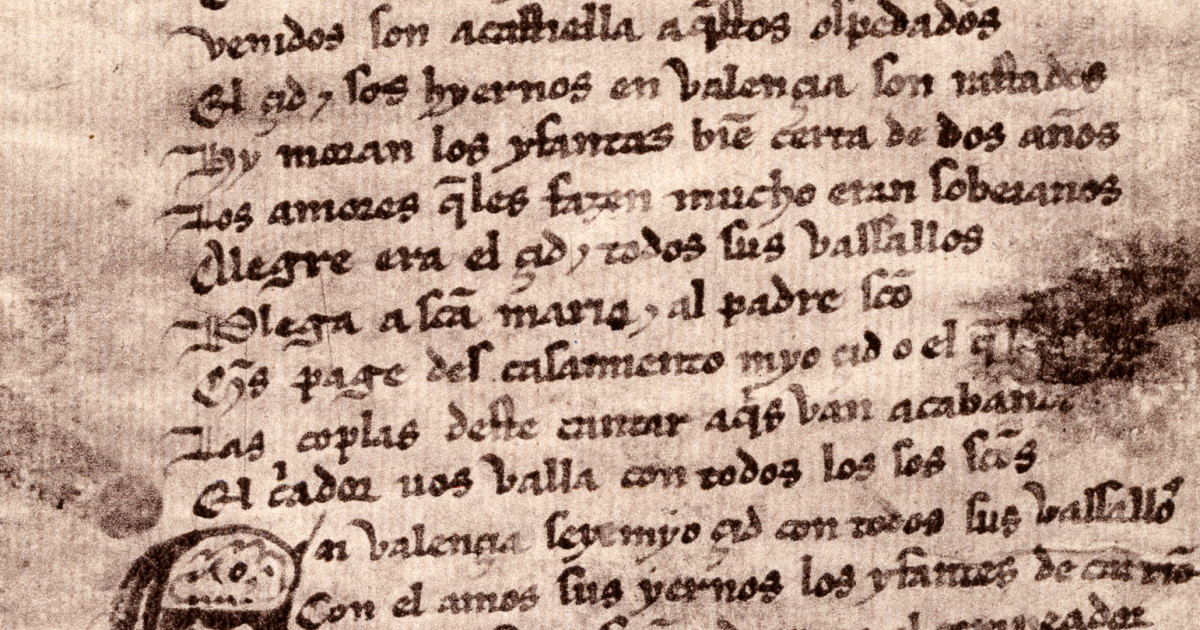 venidos son acastiella aq̃stos oſpedados
El çid ⁊ sos hyernos en valençia son rastados
Hy moran los yfantes biẽ cerca de dos años
Los amores q̃les fazen mucho eran soberanos
Alegre era el çid ⁊ todos sus vassallos
Plega a scã maria ⁊ al padre scõ
Q̃s page des casamiento myo çid o el q̃
Las coplas deste cantar aq̃s van acabando
El c̓ador uos valla con todos los sos scõs
En valençia seye myo çid con todos sus vassallos
Con el amos sus yernos los yfantes de carriõ